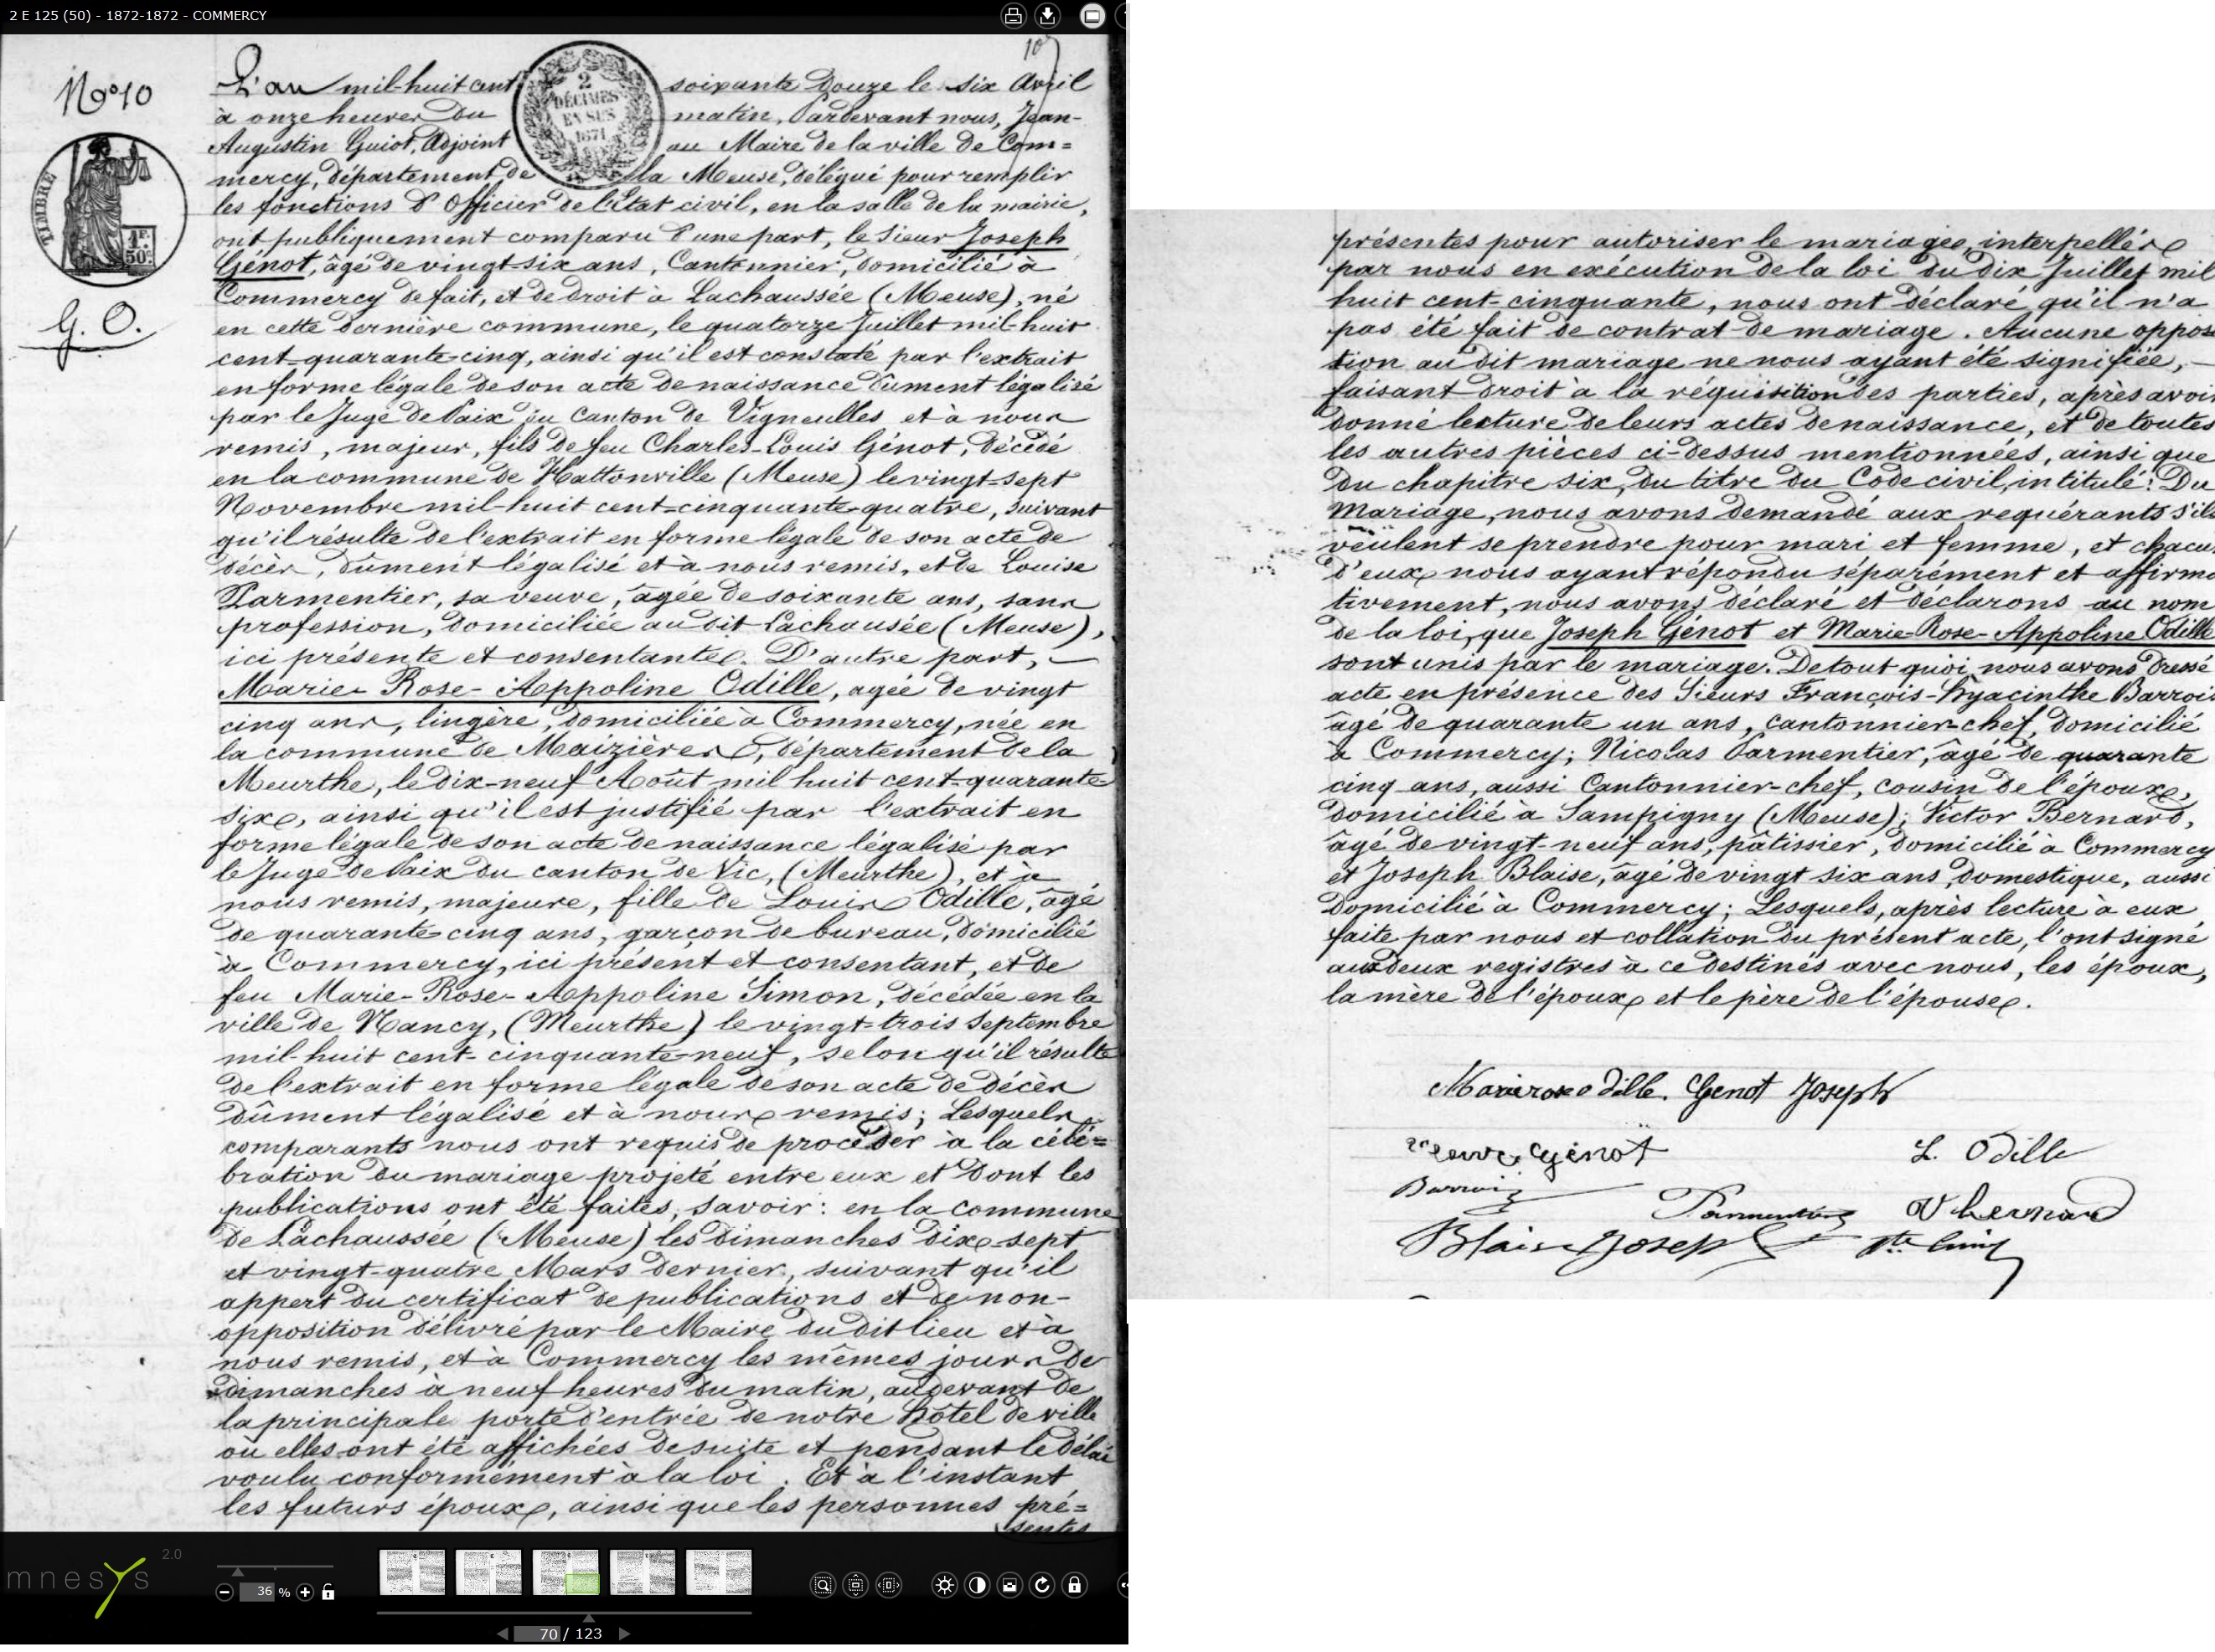 2 E 125 (50) - 1872-1872 - COMMERCY
10
N° 10
TIMBRE
1F.
50c
G. O.
2
DÉCIMES
EN SUS
1871
L'an mil-huit cent soixante douze le six Avril
à onze heures du matin, Pardevant nous, Jean-
Augustin Guiot, Adjoint au Maire de la ville de Com=
mercy, département de la Meuse, délégué pour remplir
les fonctions d'Officier de l'Etat civil, en la salle de la mairie,
ont publiquement comparu d'une part, le Sieur Joseph
Génot, âgé de vingt-six ans, Cantonnier, domicilié à
Commercy de fait, et de droit à Lachaussée (Meuse), né
en cette dernière commune, le quatorze Juillet mil-huit
cent-quarante-cinq, ainsi qu'il est constaté par l'extrait
en forme légale de son acte de naissance dûment légalisé
par le Juge de Paix du Canton de Vigneulles et à nous
remis, majeur, fils de feu Charles-Louis Génot, décédé
en la commune de Hattonville (Meuse) le vingt-sept
Novembre mil-huit cent-cinquante-quatre, suivant
qu'il résulte de l'extrait en forme légale de son acte de
décès, dûment légalisé et à nous remis, et de Louise
Parmentier, sa veuve, âgée de soixante ans, sans
profession, domiciliée au dit Lachausée (Meuse),
ici présente et consentante. D'autre part, —
Marie-Rose-Appoline Odille, agée de vingt
cinq ans, lingère, domiciliée à Commercy, née en
la commune de Maizières, département de la
Meurthe, le dix-neuf Août mil huit cent-quarante
six, ainsi qu'il est justifié par l'extrait en
forme légale de son acte de naissance légalisé par
le Juge de Paix du canton de Vic, (Meurthe), et à
nous remis, majeure, fille de Louis Odille, âgé
de quarante-cinq ans, garçon de bureau, domicilié
à Commercy, ici présent et consentant, et de
feu Marie-Rose-Appoline Simon, décédée en la
ville de Nancy, (Meurthe) le vingt-trois Septembre
mil-huit cent-cinquante-neuf, selon qu'il résulte
de l'extrait en forme légale de son acte de décès
dûment légalisé et à nous remis; Lesquels
comparants nous ont requis de procéder à la célé=
bration du mariage projeté entre eux et dont les
publications ont été faites, savoir: en la commune
de Lachaussée (Meuse) les dimanches dix-sept
et vingt-quatre Mars dernier, suivant qu'il
appert du certificat de publications et de non-
opposition délivré par le Maire du dit lieu et à
nous remis, et à Commercy les mêmes jours de
dimanches à neuf heures du matin, au devant de
la principale porte d'entrée de notre hôtel de ville
où elles ont été affichées de suite et pendant le délai
voulu conformément à la loi. Et à l'instant
les futurs époux, ainsi que les personnes pré=
sentes
présentes pour autoriser le mariage, interpellés
par nous en exécution de la loi du dix Juillet mil
huit cent-cinquante, nous ont déclaré qu'il n'a
pas été fait de contrat de mariage. Aucune oppos
tion au dit mariage ne nous ayant été signifiée, —
faisant droit à la réquisition des parties, après avoir
donné lecture de leurs actes de naissance, et de toutes
les autres pièces ci-dessus mentionnées, ainsi que
du chapitre six, du titre du Code civil, intitulé: Du
Mariage, nous avons demandé aux requérants s'ils
veulent se prendre pour mari et femme, et chacu
d'eux nous ayant répondu séparément et affirma
tivement, nous avons déclaré et déclarons au nom
de la loi, que Joseph Génot et Marie-Rose-Appoline Odille
sont unis par le mariage. De tout quoi nous avons dressé
acte en présence des Sieurs François-hyacinthe Barrois
âgé de quarante un ans, cantonnier-chef, domicilié
à Commercy; Nicolas Parmentier, âgé de quarante
cinq ans, aussi Cantonnier-chef, cousin de l'époux,
domicilié à Sampigny (Meuse); Victor Bernard,
âgé de vingt-neuf ans, pâtissier, domicilié à Commercy
et Joseph Blaise, âgé de vingt six ans, domestique, aussi
domicilié à Commercy; Lesquels, après lecture à eux
faite par nous et collation du présent acte, l'ont signé
aux deux registres à ce destinés avec nous, les époux,
la mère de l'époux et le père de l'épouse.
Marierose odille. Genot Joseph
veuve Génot L. Odille
Barrois Parmentier V bernard
Blaise Joseph
mnesys 2.0
36 %
70 / 123